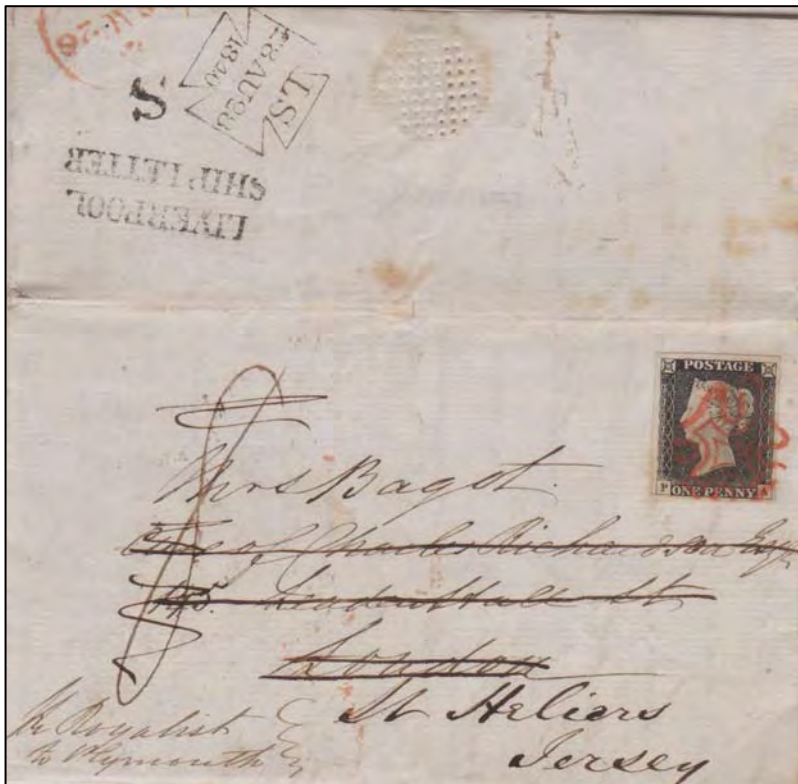 LS
28AU28
1840
S
LIVERPOOL
SHIP LETTER
POSTAGE
P ONE PENNY A
Mrs Bagot.
Care of Charles Richardson Esqr
Leadenhall St
London
St Heliers
Jersey
Royalist
to Plymouth